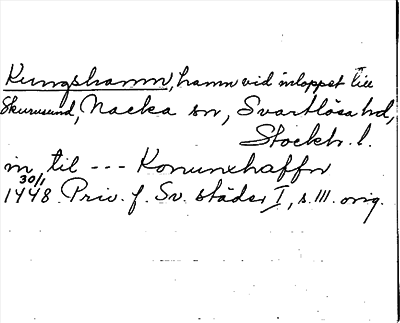 Kungshamn, hamn vid inloppet till
Skurusund, Nacka sn, Svartlösa hd,
Stockh. l.
in til --- Konunxhaffn
30/1
1448 Priv. f. Sv. städer I, s. 111. orig.